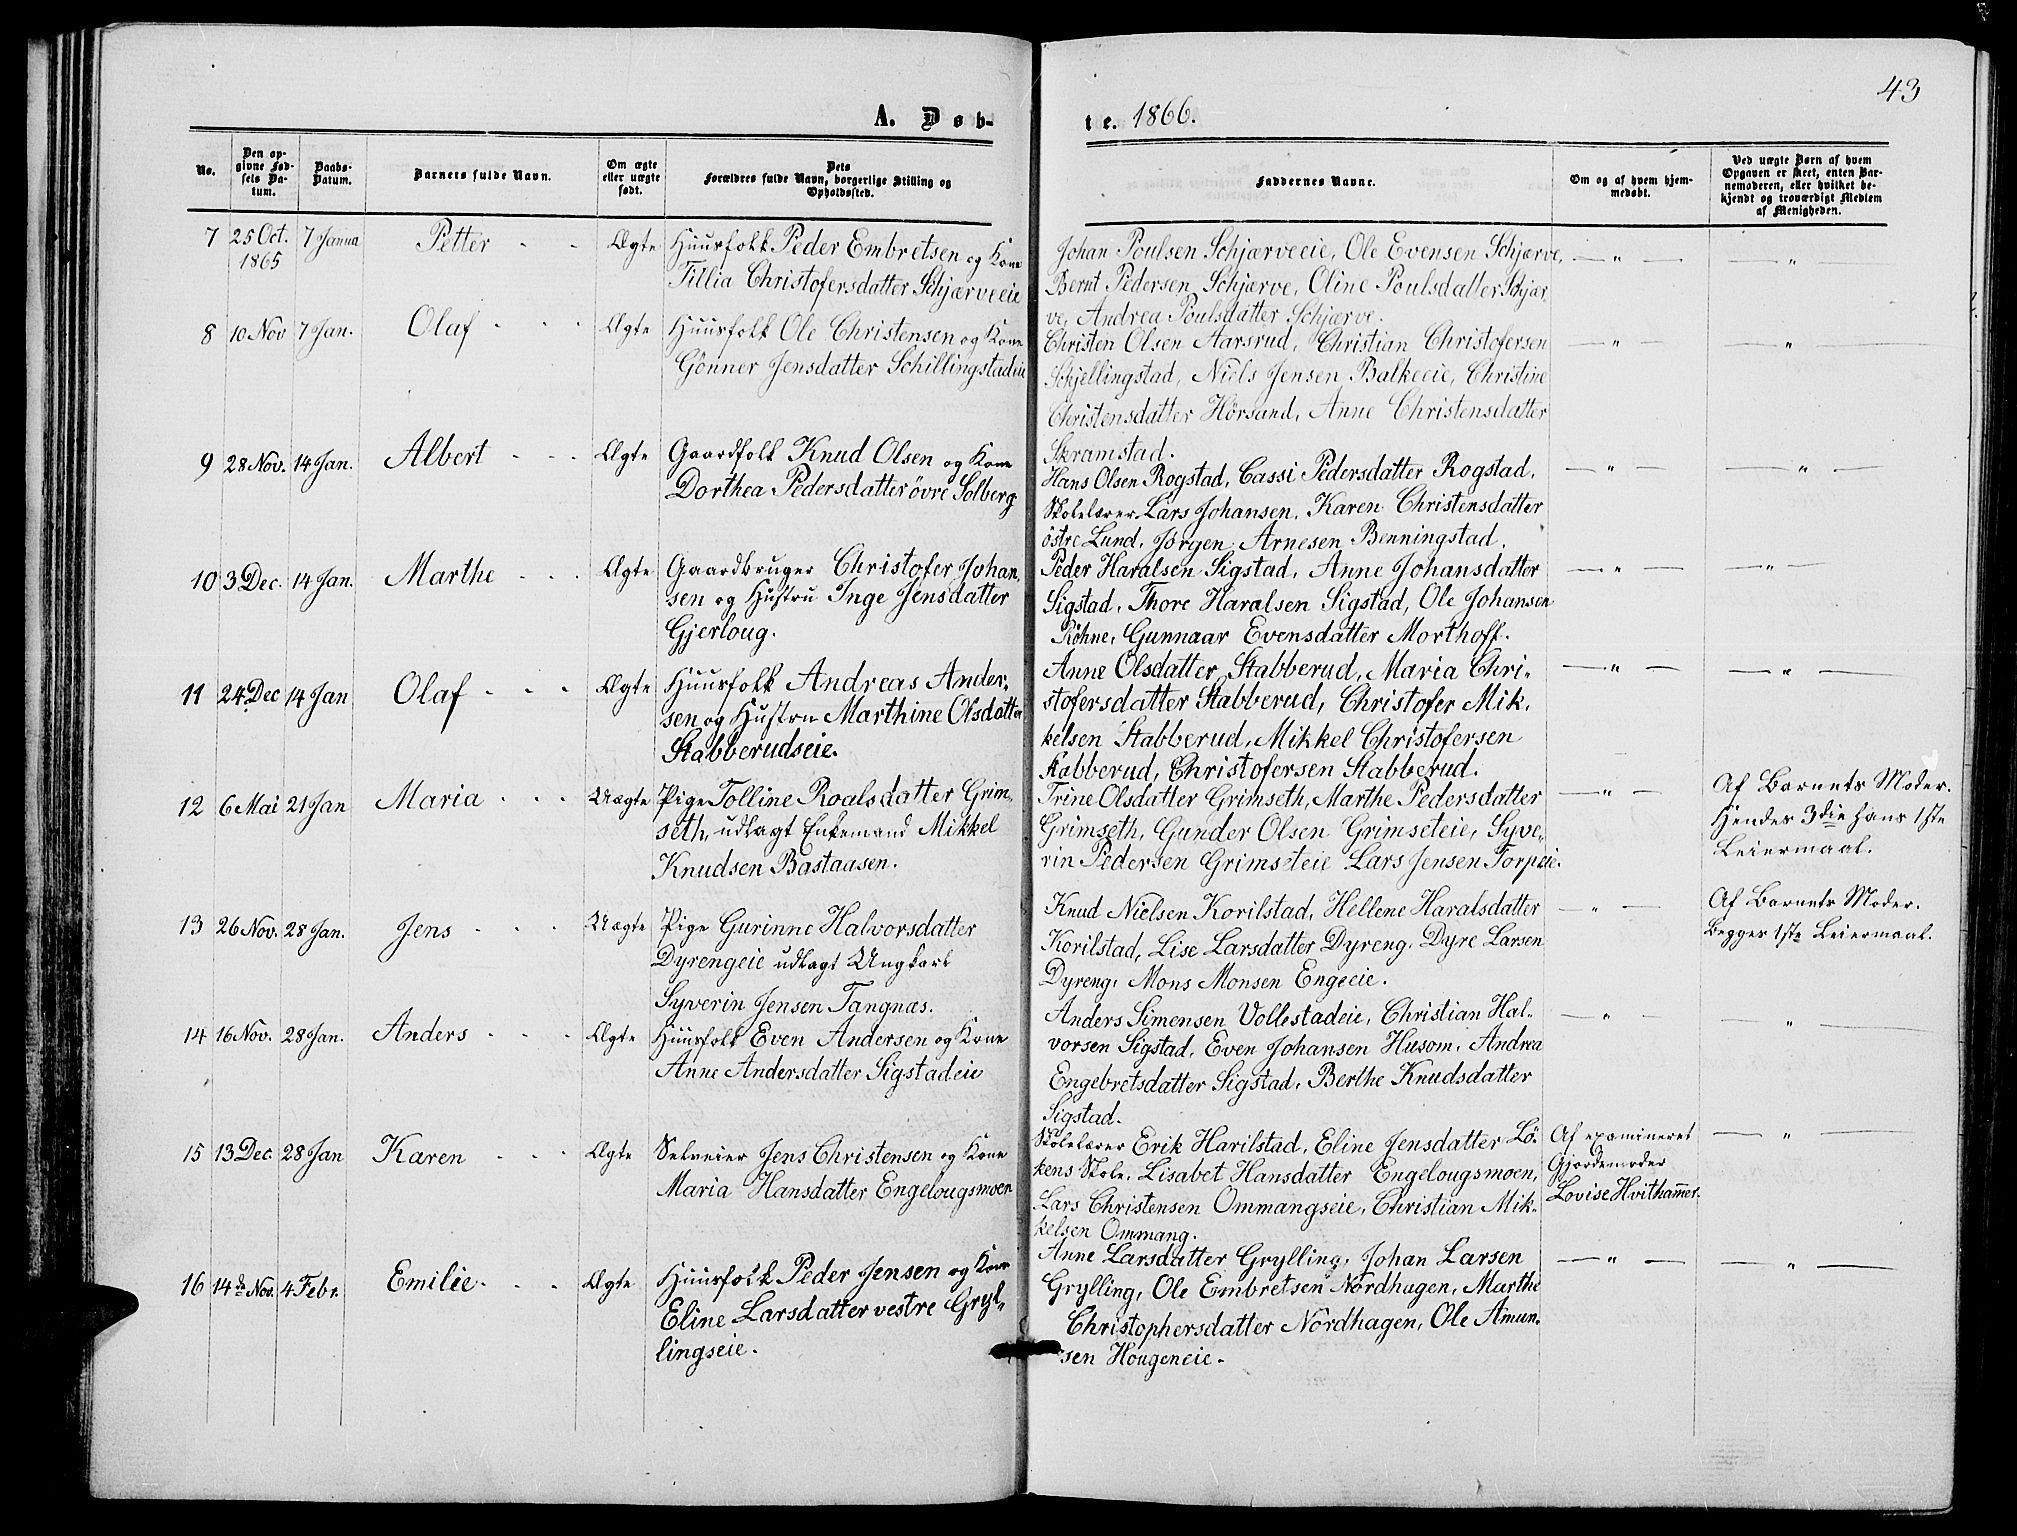 43
A. Døb-
te. 1866.
No.
Den op-
givne Fød-
sels Da-
tum.
Daabs-
Datum.
Barnets fulde Navn.
Om ægte
eller uægte
født.
Dets
Forældres fulde Navn, borgerlige Stilling og
Opholdssted.
Faddernes Navne.
Om og af hvem hjem-
medøbt.
Ved uægte Børn af hvem
Opgaven er skeet, enten Bar-
nemoderen, eller hvilket be-
kjendt og troværdigt Medlem
af Menigheden.
7 25 Oct. 1865 7 Janua Petter - - Ægte Huusfolk Peder Embretsen og Kone
Tillia Christofersdatter Schjærveeie
Johan Poulsen Schjærveeie, Ole Evensen Schjærve,
Bernt Pedersen Schjærve, Oline Poulsdatter Schjær
ve, Andrea Poulsdatter Schjærve.
— " — — " —
8 10 Nov 7 Jan. Olaf - - - Ægte Huusfolk Ole Christensen og Kone
Gönner Jensdatter Schillingstadeie
Christen Olsen Aarsrud, Christian Christofersen
Schjellingstad, Niels Jensen Balkeeie, Christine
Christensdatter Hörsand, Anne Christensdatter
Skramstad.
— " — — " —
9 28 Nov. 14 Jan. Albert - - - Ægte Gaardfolk Knud Olsen og Kone
Dorthea Pedersdatter övre Solberg
Hans Olsen Rogstad, Cassi Pedersdatter Rogstad,
Skolelærer Lars Johansen, Karen Christensdatter
östre Lund, Jörgen Arnesen Benningstad.
— " — — " —
10 3 Dec. 14 Jan. Marthe - - - Ægte Gaardbruger Christofer Johan,
sen og Hustru Inge Jensdatter
Gjerloug.
Peder Haralsen Sigstad, Anne Johansdatter
Sigstad, Thore Haralsen Sigstad, Ole Johansen
Röhne, Gunnaar Evensdatter Morthoff.
— " — — " —
11 24 Dec 14 Jan Olaf - - - Ægte Huusfolk Andreas Ander,
sen og Hustru Marthine Olsdatter
Stabberudseie.
Anne Olsdatter Stabberud, Maria Chri-
stofersdatter Stabberud, Christofer Mik,
kelsen Stabberud, Mikkel Christofersen
Stabberud, Christofersen Stabberud.
— " — — " —
12 6 Mai 21 Jan Maria - - - Uægte Pige Tolline Roalsdatter Grim,
seth, udlagt Enkemand Mikkel
Knudsen Bastaasen.
Trine Olsdatter Grimseth, Marthe Pedersdatter
Grimseth, Gunder Olsen Grimseteie, Syve,
rin Pedersen Grimsteie Lars Jensen Torpeie.
— " —
Af Barnets Moder.
Hendes 3die hans 1ste
Leiermaal.
13 26 Nov. 28 Jan. Jens - - - Uægte Pige Gurinne Halvorsdatter
Dyrengeie udlagt Ungkarl
Syverin Jensen Tangnæs.
Knud Nielsen Korilstad, Hellene Haralsdatter
Korilstad, Lise Larsdatter Dyreng, Dyre Larsen
Dyreng, Mons Monsen Engeeie.
- " —
Af Barnets Moder.
Begges 1ste Leiermaal.
14 16 Nov. 28 Jan. Anders - - - Ægte Huusfolk Even Andersen og Kone
Anne Andersdatter Sigstadeie
Anders Simensen Vollestadeie, Christian Hal-
vorsen Sigstad, Even Johansen Husom, Andrea
Engebretsdatter Sigstad, Berthe Knudsdatter
Sigstad.
— " — — " —
15 13 Dec 28 Jan Karen - - - Ægte Selveier Jens Christensen og Kone
Maria Hansdatter Engelougsmoen
Skolelærer Erik Harilstad, Eline Jensdatter Lö-
kens Skole, Lisabet Hansdatter Engelougsmoen,
Lars Christensen Ommangseie, Christian Mik-
kelsen Ommang.
Af examineret
Gjordemoder
Lovise Hvithammer.
— " —
16 14de Nov. 4 Febr. Emilie - - - Ægte Huusfolk Peder Jensen og Kone
Eline Larsdatter vestre Gryl-
lingseie.
Anne Larsdatter Grylling, Johan Larsen
Grylling, Ole Embretsen Nordhagen, Marthe
Christophersdatter Nordhagen, Ole Amun-
sen Hougeneie.
— " — — " —